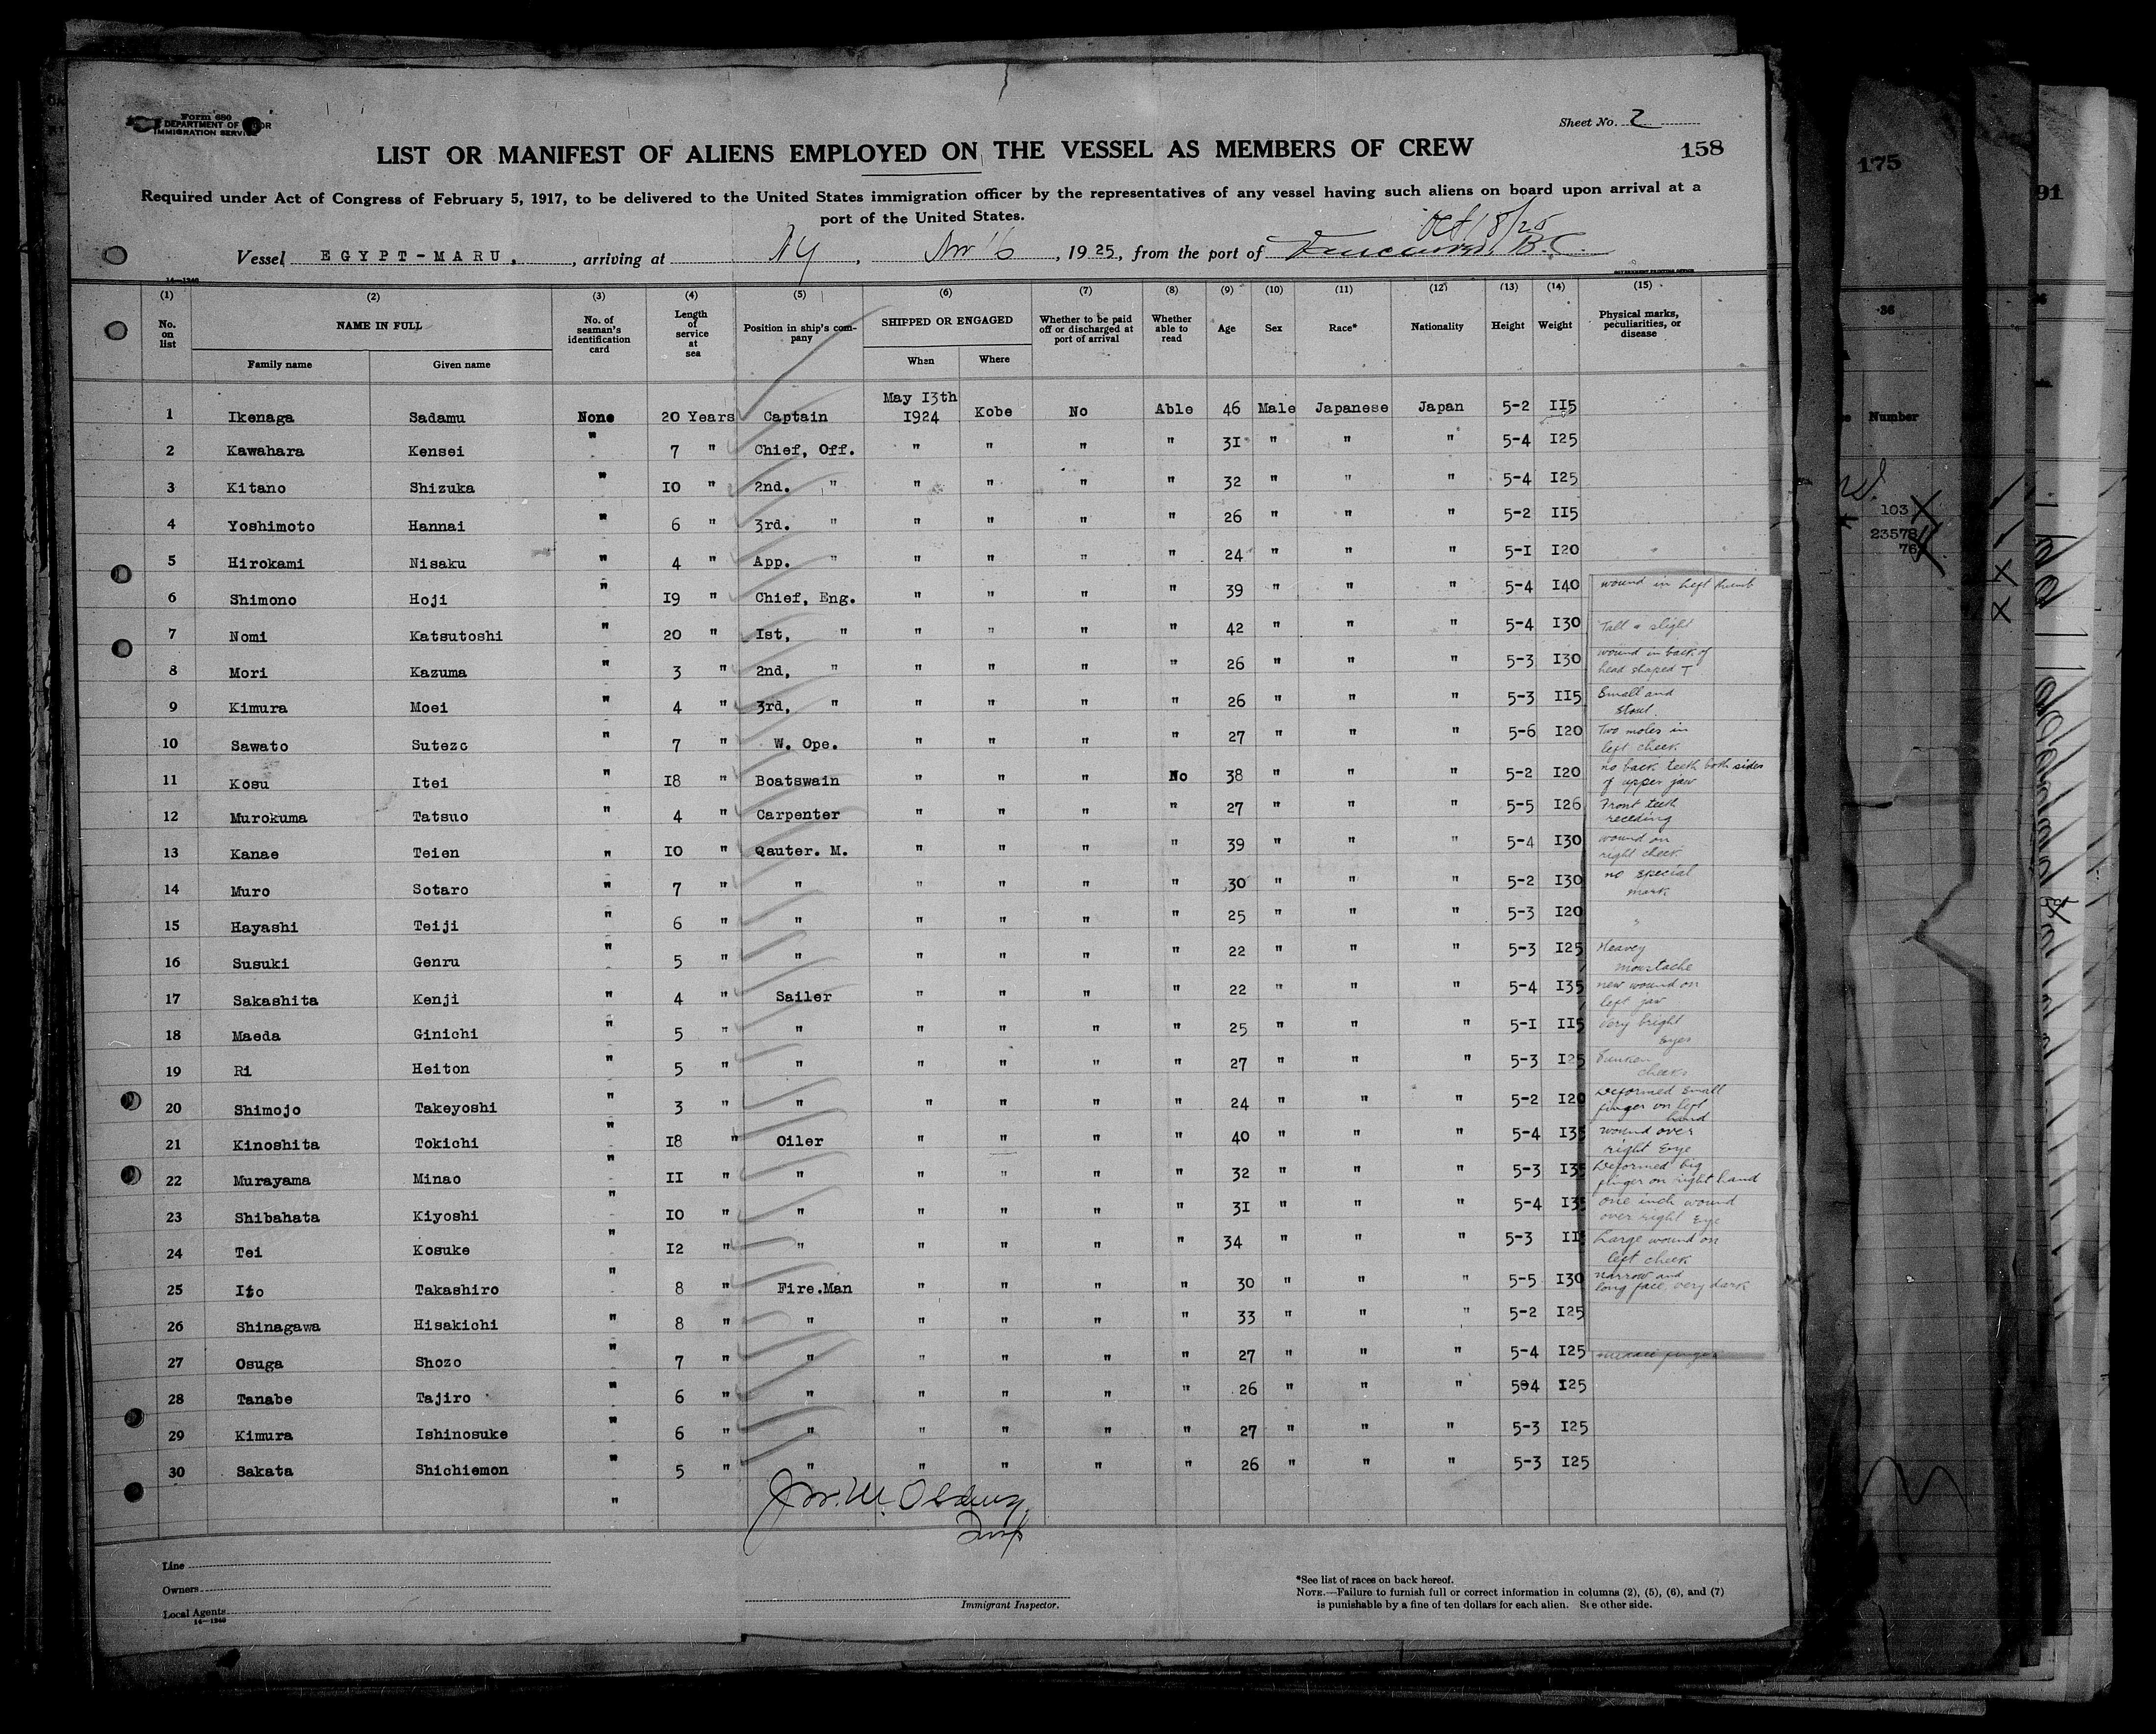 Form 680
DEPARTMENT OF LABOR
IMMIGRATION SERVICE
Sheet No. 2
LIST OR MANIFEST OF ALIENS EMPLOYED ON THE VESSEL AS MEMBERS OF CREW
158
Required under Act of Congress of February 5, 1917, to be delivered to the United States immigration officer by the representatives of any vessel having such aliens on board upon arrival at a
port of the United States.
Oct 18/25
Vessel EGYPT-MARU, , arriving at NY , Nov 16 , 1925, from the port of Vancouver, B.C.
16—1240
GOVERNMENT PRINTING OFFICE
(1) (2) (3) (4) (5) (6) (7) (8) (9) (10) (11) (12) (13) (14) (15)
No. on list NAME IN FULL No. of seaman's identification card Length of service at sea Position in ship's company SHIPPED OR ENGAGED Whether to be paid off or discharged at port of arrival Whether able to read Age Sex Race* Nationality Height Weight Physical marks, peculiarities, or disease
Family name Given name When Where
1 Ikenaga Sadamu None 20 Years Captain May I3th I924 Kobe No Able 46 Male Japanese Japan 5-2 II5
2 Kawahara Kensei " 7 " Chief, Off. " " " " 3I " " " 5-4 I25
3 Kitano Shizuka " I0 " 2nd. " " " " " 32 " " " 5-4 I25
4 Yoshimoto Hannai " 6 " 3rd. " " " " " 26 " " " 5-2 II5
5 Hirokami Nisaku " 4 " App. " " " " " 24 " " " 5-I I20
6 Shimono Hoji " I9 " Chief, Eng. " " " " 39 " " " 5-4 I40 wound in left thumb
7 Nomi Katsutoshi " 20 " Ist, " " " " " 42 " " " 5-4 I30 Tall & slight
8 Mori Kazuma " 3 " 2nd, " " " " " 26 " " " 5-3 I30 wound in back of head shaped T
9 Kimura Moei " 4 " 3rd, " " " " " 26 " " " 5-3 II5 Small and stout.
10 Sawato Sutezo " 7 " W. Ope. " " " " 27 " " " 5-6 I20 Two moles in left cheek
11 Kosu Itei " I8 " Boatswain " " " No 38 " " " 5-2 I20 no back teeth both sides of upper jaw
12 Murokuma Tatsuo " 4 " Carpenter " " " " 27 " " " 5-5 I26 Front teeth receding
13 Kanae Teien " I0 " Qauter. M. " " " " 39 " " " 5-4 I30 wound on right cheek
14 Muro Sotaro " 7 " " " " " " 30 " " " 5-2 I30 no special mark
15 Hayashi Teiji " 6 " " " " " " 25 " " " 5-3 I20 "
16 Susuki Genru " 5 " " " " " " 22 " " " 5-3 I25 Heavey moustache
17 Sakashita Kenji " 4 " Sailer " " " " 22 " " " 5-4 I35 new wound on left jaw
18 Maeda Ginichi " 5 " " " " " " 25 " " " 5-I II5 Very bright Eyes
19 Ri Heiton " 5 " " " " " " 27 " " " 5-3 I25 Sunken cheeks
20 Shimojo Takeyoshi " 3 " " " " " " 24 " " " 5-2 I20 Deformed small finger on left hand
21 Kinoshita Tokichi " I8 " Oiler " " " " 40 " " " 5-4 I35 wound over right Eye
22 Murayama Minao " II " " " " " " 32 " " " 5-3 I35 Deformed big finger on right hand
23 Shibahata Kiyoshi " I0 " " " " " " 3I " " " 5-4 I35 one inch wound over right Eye
24 Tei Kosuke " I2 " " " " " " 34 " " " 5-3 II Large wound on left cheek
25 Ito Takashiro " 8 " Fire.Man " " " " 30 " " " 5-5 I30 narrow and long face, very dark
26 Shinagawa Hisakichi " 8 " " " " " " 33 " " " 5-2 I25
27 Osuga Shozo " 7 " " " " " " 27 " " " 5-4 I25 finger
28 Tanabe Tajiro " 6 " " " " " " 26 " " " 594 I25
29 Kimura Ishinosuke " 6 " " " " " " 27 " " " 5-3 I25
30 Sakata Shichiemon " 5 " " " " " " 26 " " " 5-3 I25
"
Line
Owners
Local Agents
16—1240
Immigrant Inspector.
*See list of races on back hereof.
NOTE.—Failure to furnish full or correct information in columns (2), (5), (6), and (7)
is punishable by a fine of ten dollars for each alien. See other side.
175
36
Number
103
23578
76
91